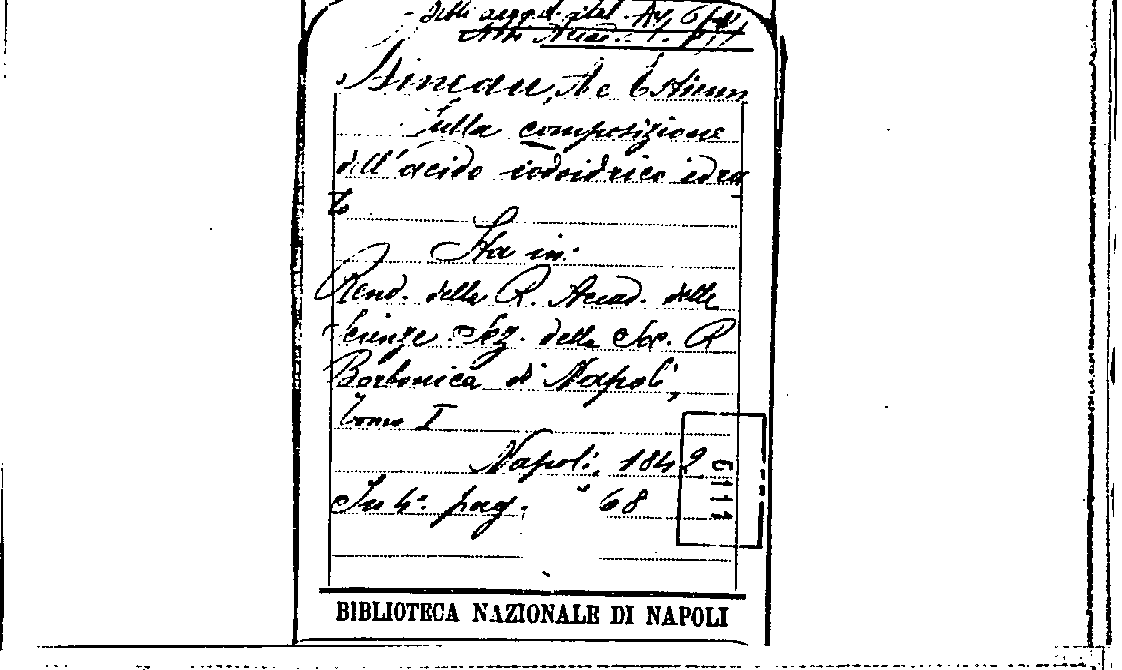 Bineau, A e Etienn
Sulla composizione
dell' acido iodoidrico idra
to
Sta in:
Rend. della R. Accad. delle
Scienze Sez. della Soc. R
Borbonica di Napoli,
Tomo I
Napoli, 1842
In 4°. pag. 68
BIBLIOTECA NAZIONALE DI NAPOLI